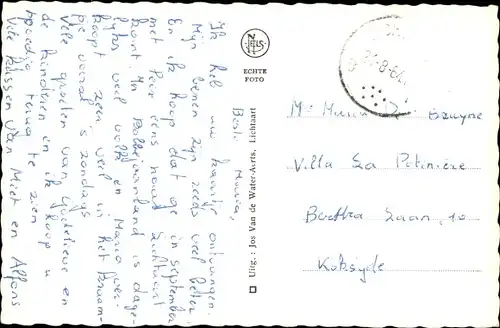 Beste Maria,
Ik heb uw kaartje ontvangen.
Mijn benen zijn reeds veel beter.
En ik hoop dat ge in september
met Paul eens naar Lichtaart
komt. In Bobbejaanland is dage-
lijks veel volk en Mario
loopt zeer veel in het
vooral 's zondags
Vele groeten van Godelieve en
de kinderen en ik hoop u
spoedig terug te zien
Vele kussen van Miet en Alfons
NELS
ECHTE
FOTO
Uitg.: Jos Van de Water-Aerts. Lichtaart
Bruyne
Villa La Potinière
Bertha Laan, 10
Koksijde